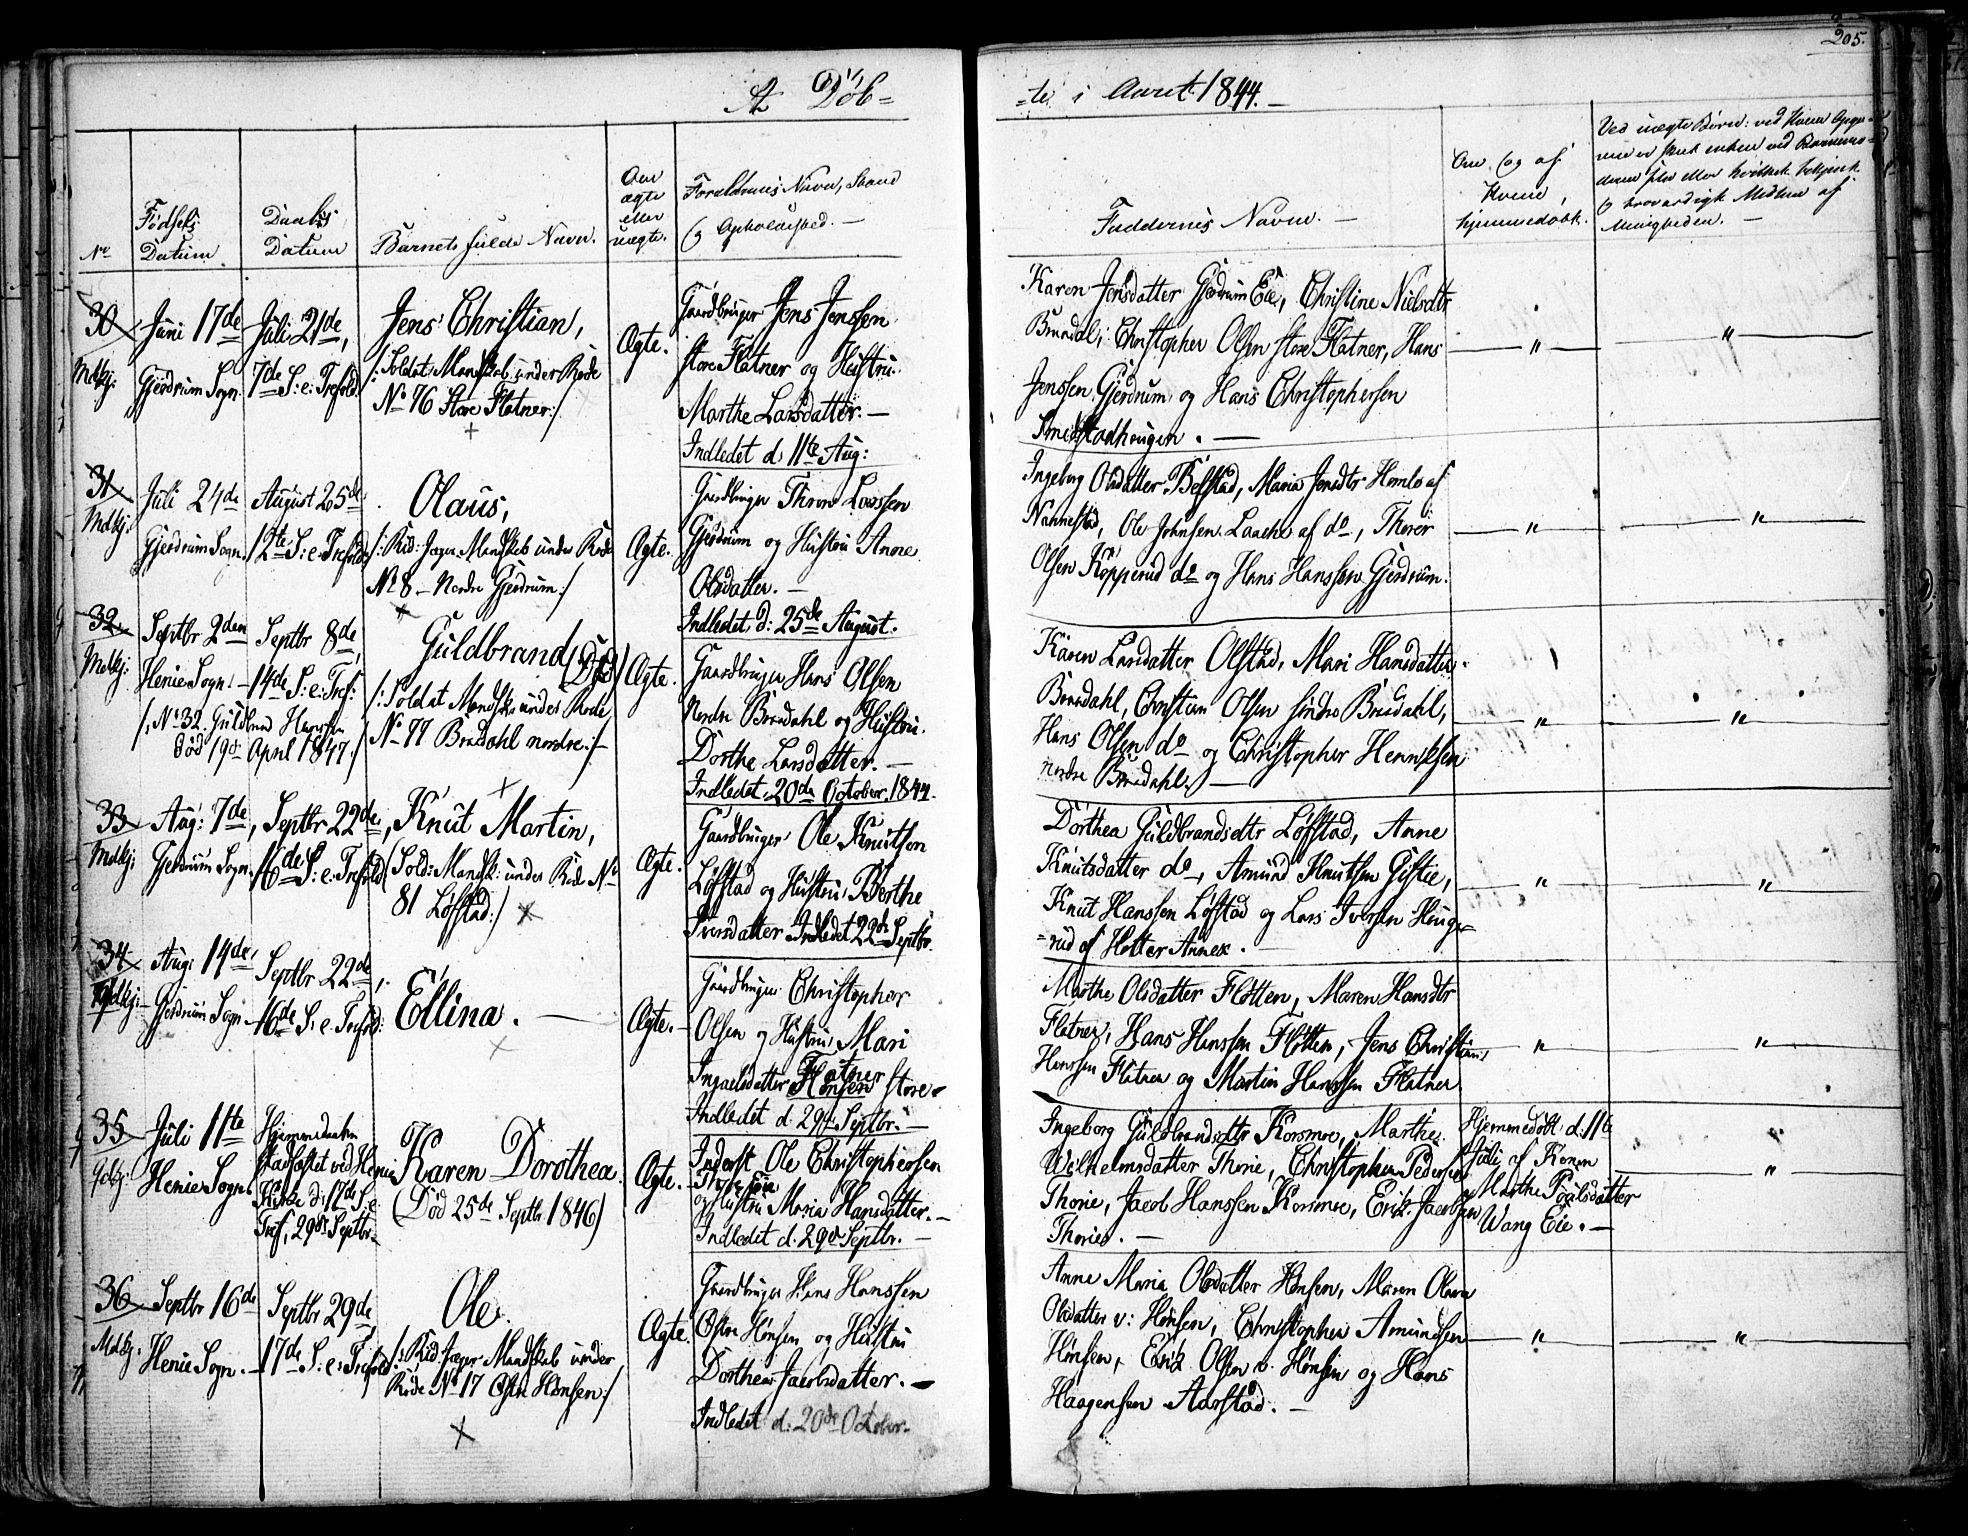 205.
A Döb=
=te i Aaret 1844.
No
Födsels Datum.
Daabs Datum
Barnets fulde Navn.
Om ægte eller uægte.
Forældrenes Navn, Stand og Opholdssted. —
Faddernes Navne. —
Om og af hvem hjemmedöbt.
30
Mdkj:
Juni 17de
Gjerdrum Sogn.
Juli 21de,
7de S: e: Trefold:
Jens Christian,
/: Soldat Mandskab under Rode
No 76 Store Flatner:/
Ægte.
Gaardbruger Jens Jenssen
store Flatner og Hustru
Marthe Larsdatter. —
Indledet d. 11te Aug:
Karen Jensdatter Gjerdrum Eie, Christine Nielsdtr
Braadal, Christopher Olsen store Flatner, Hans
Jenssen Gjerdrum og Hans Christophersen
Smedstadhougen. —
— " —
— " —
31
Mdkj:
Juli 24de
Gjerdrum Sogn.
August 25de
12te S: e: Trefold
Olaus,
/: Rid: Jæger Mandskab under Rode
No 8 – Nordre Gjerdrum:/
Ægte.
Gaardbruger Thron Larssen
Gjerdrum og Hustru Anne
Olsdatter. —
Indledet d: 25de August.
Ingeborg Olsdatter Bölstad, Maria Jensdtr Homlo af
Nannestad, Ole Johnsen Laache af do, Thorer
Olsen Kopperud do og Hans Hanssen Gjerdrum.
— " —
— " —
32
Mdkj:
Septbr 2den
Henie Sogn. —
/: No 32. Guldbrand Hanssen
död 19de April 1847:/
Septbr 8de,
14de S: e: Tref:
Guldbrand (Död)
/: Soldat Mandsk: under Rode
No 77 Bradahl nordre:/
Ægte.
Gaardbruger Hans Olsen
Nordre Braadahl og Hustru
Dorthe Larsdatter. —
Indledet 20de October 1844.
Karen Larsdatter Olstad, Mari Hansdatter
Braadahl, Christian Olsen söndre Braadahl,
Hans Olsen do og Christopher Henriksen
nordre Braadahl. —
— " —
— " —
33
Mdkj:
Aug: 7de,
Gjerdrum Sogn.
Septbr 22de,
16de S: e: Trefold
Knut Martin,
(Sold: Mandsk: under Rode No
81 Löfstad:/
Ægte.
Gaardbruger Ole Knutsen
Löfstad og Hustru Berthe
Iversdatter Indledet 22de Septbr.
Dorthea Guldbrandsdtr Löfstad, Anne
Knutsdatter do, Amund Knutsen Gistie,
Knut Hanssen Löfstad og Lars Iversen Houge=
=rud af Holter Annex. —
— " —
— " —
34
Aug: 14de,
Gjerdrum Sogn.
Septbr 22de,
16de S: e: Trefold:
Ellina. —
Ægte. —
Gaardbruger Christopher
Olsen og Hustru Mari
Ingvelsdatter Flatner store
Indledet d. 29de Septbr. —
Marthe Olsdatter Flotten, Maren Hansdtr
Flatner, Hans Hanssen Flotten, Jens Christian
Hanssen Flatner og Martin Hanssen Flatner
— " —
— " —
35
Juli 11te
Henie Sogn
Hjemmedaaben
stadfæstet ved Henie
Kirke d: 17de S. e.
Tref, 29de Septbr. —
Karen Dorothea.
(Död 25de Septbr 1846)
Ægte. —
Inderst Ole Christophersen
og Hustru Maria Hansdatter. —
Indledet d. 29de Septbr. —
Ingeborg Guldbrandsdtr Korsmoe, Marthe
Wilhelmsdatter Thorie, Christopher Pedersen
Thorie, Jacob Hanssen Korsmoe, Erik Jacobsen
Thorie. —
Hjemmedöbt d. 11te
Juli af Konen
Marthe Poulsdatter
Wang Eie. —
— " —
36
Mdkj:
Septbr 16de
Henie Sogn. —
Septbr 29de
17de S: e: Trefold
Ole.
/: Rid: Jæger Mandskab under
Rode No 17 Östre Hönsen:/
Ægte.
Gaardbruger Hans Hanssen
Östre Hönsen og Hustru
Dorthea Jacobsdatter. —
Indledet d: 20de October.
Anne Maria Olsdatter Hönsen, Maren Olava
Olsdatter v: Hönsen, Christopher Amundsen
Hönsen, Erik Olsen v. Hönsen og Hans
Haagensen Aarstad. —
— " —
— " —